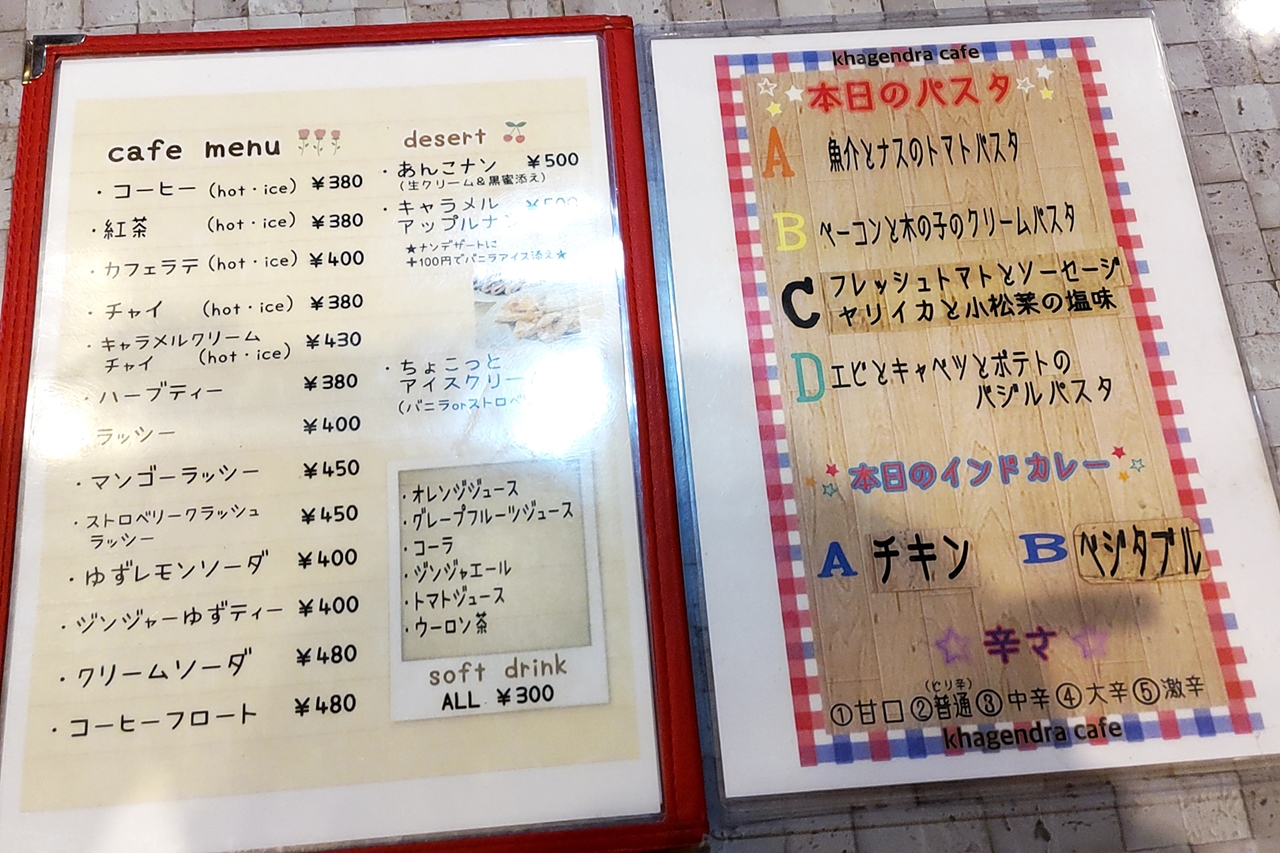 cafe menu
・コーヒー (hot・ice) ¥380
・紅茶 (hot・ice) ¥380
・カフェラテ (hot・ice) ¥400
・チャイ (hot・ice) ¥380
・キャラメルクリーム
チャイ (hot・ice) ¥430
・ハーブティー ¥380
ラッシー ¥400
・マンゴーラッシー ¥450
・ストロベリークラッシュ
ラッシー ¥450
・ゆずレモンソーダ ¥400
・ジンジャーゆずティー ¥400
・クリームソーダ ¥480
・コーヒーフロート ¥480
desert
・あんこナン ¥500
(生クリーム&黒蜜添え)
・キャラメル ¥500
アップルナン
★ナンデザートに
+100円でバニラアイス添え★
・ちょこっと
アイスクリー
(バニラorストロベ
・オレンジジュース
・グレープフルーツジュース
・コーラ
・ジンジャエール
・トマトジュース
・ウーロン茶
soft drink
ALL ¥300
khagendra cafe
本日のパスタ
A 魚介とナスのトマトパスタ
B ベーコンと木の子のクリームパスタ
C フレッシュトマトとソーセージ
ヤリイカと小松菜の塩味
D エビとキャベツとポテトの
バジルパスタ
本日のインドカレー
A チキン B ベジタブル
☆ 辛さ ☆
(ピリ辛)
①甘口 ②普通 ③中辛 ④大辛 ⑤激辛
khagendra cafe